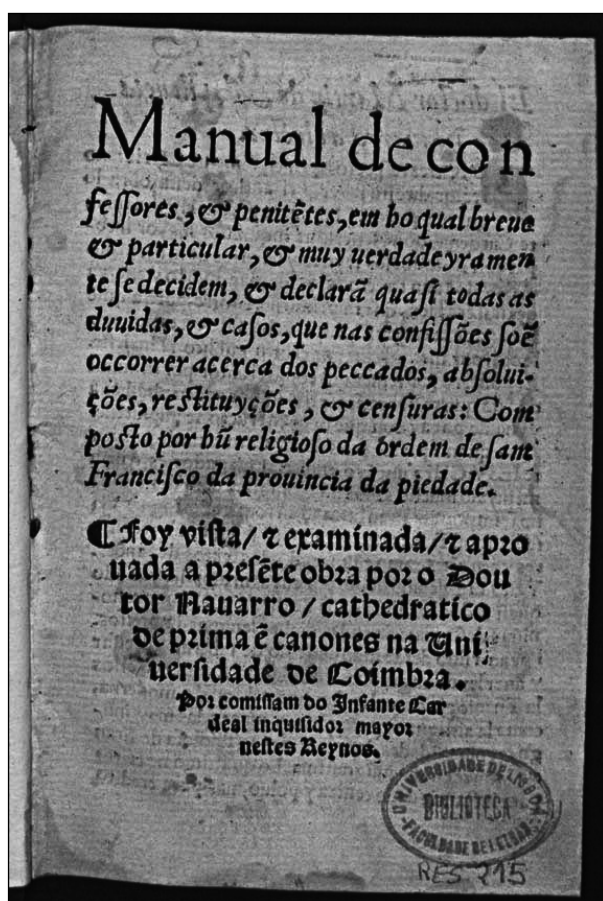 Manual de con
feſſores, & penitẽtes, em ho qual breue
& particular, & muy uerdadeyramen
te ſe decidem, & declarã quaſi todas as
duuidas, & caſos, que nas confiſſões ſoẽ
occorrer acerca dos peccados, abſolui-
ções, reſtituyções, & cenſuras: Com
poſto por hũ religioſo da ordem de ſam
Franciſco da prouincia da piedade.
¶ Foy viſta/ ⁊ examinada/ ⁊ apꝛo
uada a pꝛeſẽte obra poꝛ o Dou
tor Nauarro / cathedratico
de pꝛima ẽ canones na Uni
uerſidade de Coimbꝛa.
Poꝛ comiſſam do Infante Car
deal inquiſidoꝛ mayoꝛ
neſtes Reynos.
UNIVERSIDADE DE LISBOA
BIBLIOTECA
FACULDADE DE LETRAS
RES 215